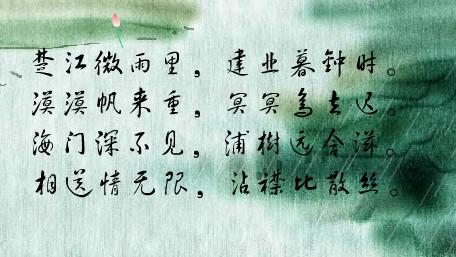 楚江微雨里，建业暮钟时。
漠漠帆来重，冥冥鸟去迟。
海门深不见，浦樹远含滋。
相送情无限，沾襟比散丝。